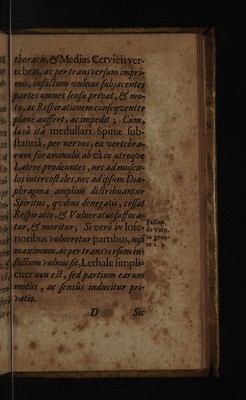 thoracis, & Medias Cervicis ver-
tebras, ac per transversum impri-
mis, inflictum vulnus subjacentes
partes omnes sensu privat, & mo-
tu, ac Respirationem conseqventer
plane auffert, ac impedit; Cum,
læsâ itâ medullari Spinæ sub-
stantiâ, per nervos, ex vertebra-
rum foraminulis ab eâ in utroqve
Latere prodeuntes, nec ad muscu-
los intercostales, nec ad ipsum Dia-
phragma amplius distribuantur
Spiritus, qvibus denegatis, cessat
Respiratio, & Vulneratus suffoca-
tur, & moritur; Si verò in Infe-
rioribus vulneretur partibus, nisi
maximum, ac per transversum in-
flictum vulnus sit, Lethale simpli-
citer non est, sed partium earum
motûs, ac sensûs inducitur pri-
vatio.
Fallop.
de Vuln.
in gene-
D Sic